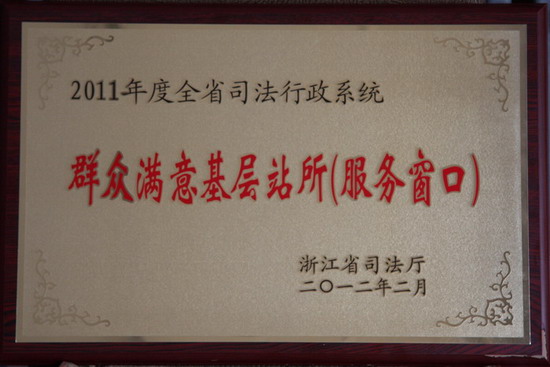 2011年度全省司法行政系统
群众满意基层站所(服务窗口)
浙江省司法厅
二〇一二年二月